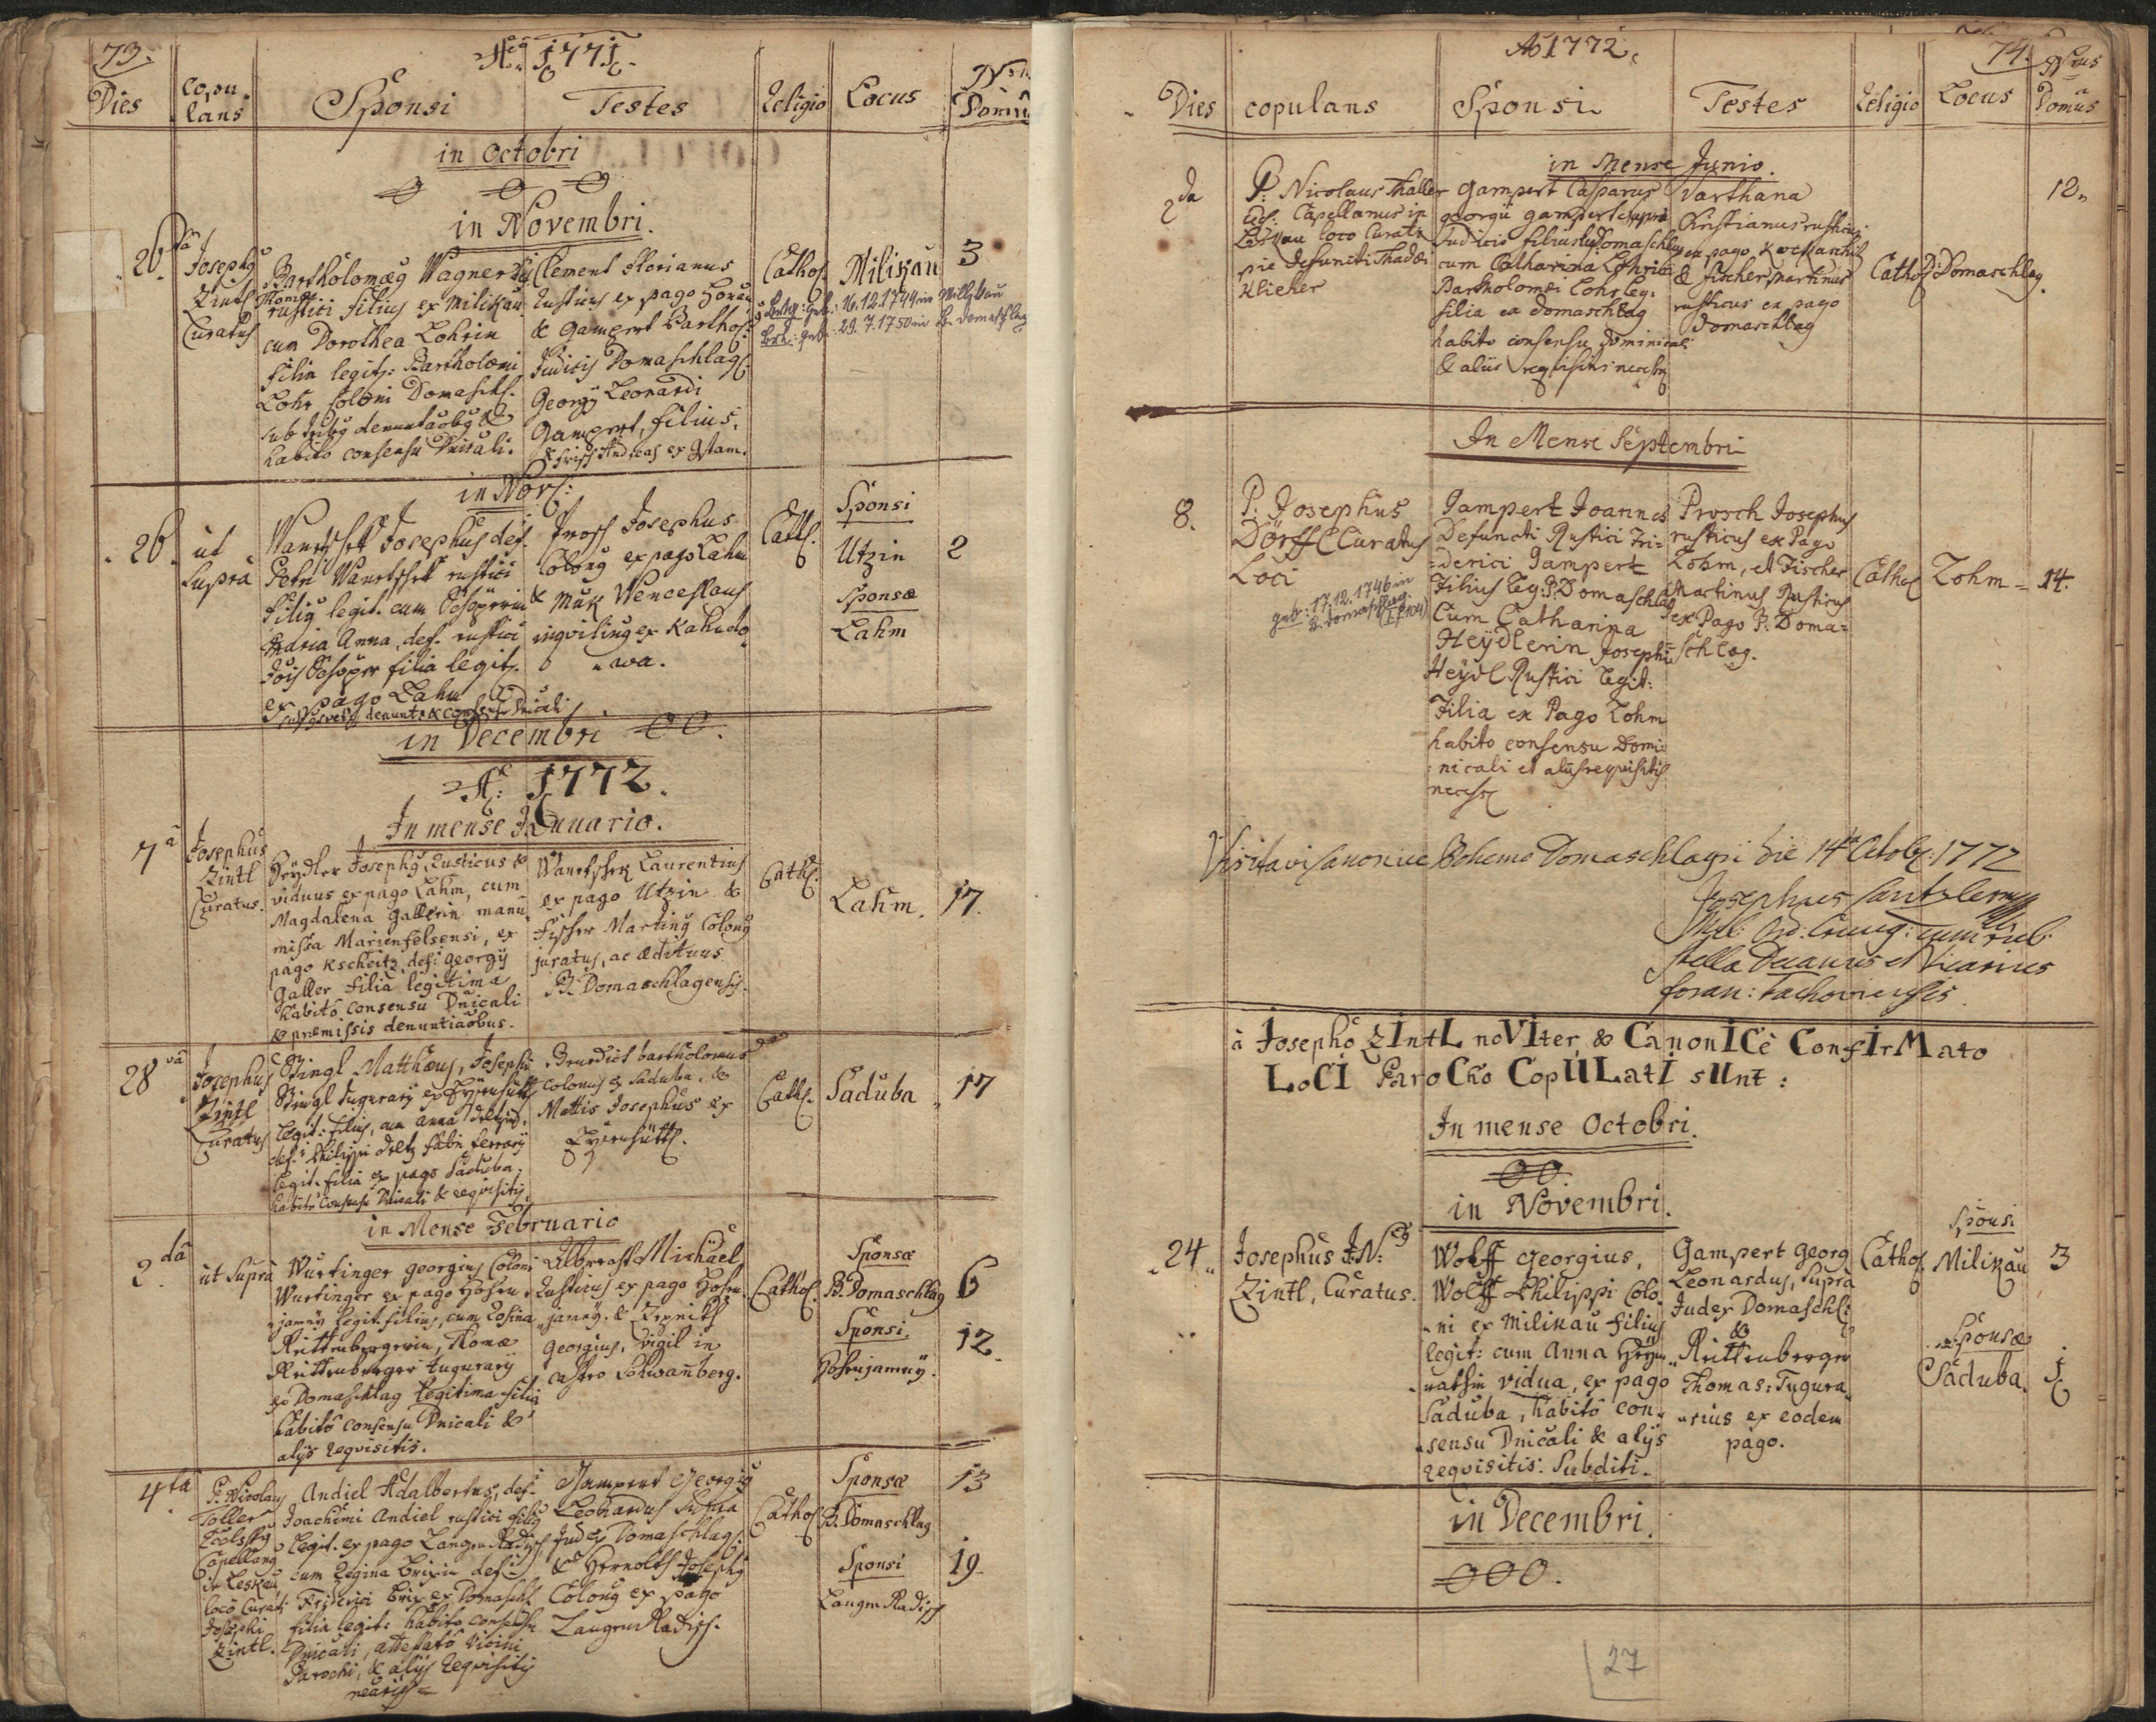 73.
Aõ 1771.
Dies
copu
lans
Sponsi
Testes
Religio
Locus
Domû
in Octobri
in Novembri.
26
Josephg
Zintl
Curatus
Bartholomæg Wagner
rustici filius ex Milikau
cum Dorothea Lohrin
filia legit: Bartholomæi
Lohr coloni Domaschl.
sub denuntiaõbg &
habito consensu Dnicali.
Clement Florianus
Rusticus ex pago
& Gampert Barthol:
Judicis Domaschlag:
Georgÿ Leonardi
Gampert, filius.
Andreas ex
Cathol
Milikau
3
geb: 16.12.1744 in Millikau
geb: 29.7.1750 in B. Domaschlag
in Nov:
26
ut
supra
Wanetschek Josephus def.
Petri Wanetschek rustici
filig legit. cum
Maria Anna, def. rustici
filia legit.
ex pago Lahm
denunt. & consensu Dnicali
Prosch Josephus
Colong ex pago Lahm
& Muk Wenceslaus
inqviling ex Kahudo
wa.
Cath.
Sponsi
Utzin
2
Sponsæ
Lahm
in Decembri
Aõ: 1772.
In mense Januario.
7a
Josephus
Zintl
Curatus.
Heÿdler Josephg, Rusticus &
viduus ex pago Lahm, cum
Magdalena Gallerin manu
missa Marienfelsensi, ex
pago Kscheitz, def: Georgÿ
Galler filia legitima
habitô consensu Dnicali
& præmissis denuntiaõbus.
Wanetschek Laurentius
ex pago Utzin &
Fischer Marting Colong
juratus, ac ædituus
B: Domaschlagensis.
Cath.
Lahm.
17.
28va
Josephus
Zintl
Curatus
Bingl Matthæus, Josephi
Bingl Tugurarÿ ex
legit: filius, cum Anna
def: Philippi fabri ferrarÿ
legit. filia ex pago Saduba,
habito Consensu Dnicali & reqvisitis.
Benedict Bartholomæus
Colonus ex Saduba, &
Mattis Josephus ex
Cath.
Saduba
17
in Mense Februario
2.da
ut supra
Wurtinger Georgius Coloni
Wurtinger ex pago Hohen
jamnÿ legit. filius, cum Rosina
Reittenbergerin, Thomæ
Reittenberger tugurarÿ
ex Domaschlag legitima filia
habitô consensu Dnicali &
alÿs reqvisitis.
Albrecht Michäel
Rusticus ex pago Hohen
jamnÿ. &
Georgius, vigil in
castro Schwanberg.
Cathol.
Sponsæ
B. Domaschlag
6
Sponsi.
Hohenjamnÿ.
12.
4ta
P. Nicolaus
Toller
Capellang
in Leskau
loco Curati
Josephi
Zintl.
Andiel Adalbertus, def:
Joachimi Andiel rustici filig
legit. ex pago Langen Radisch
cum Regina Brixin def:
Friderici Brix ex Domaschl.
filia legit: habito consensu
Dnicali, attestatô vicini
Parochi, & alÿs reqvisitis
Gampert Georgig
Leonardus Supra
Judex Domaschlag:
& Hernolth Josephg
Colong ex pago
Langen Radisch.
Cathol
Sponsæ
B. Domaschlag
13
Sponsi
Langen Radisch
19.
Aõ 1772.
74.
Nrus
Domûs
Dies
copulans
Sponsi
Testes
Religio
Locus
in Mense Junio.
2da
P. Nicolaus Thaller
Capellanus in
Leskau loco Curati
pie defuncti Thadæi
Klieher
Gampert Casparus
Georgii Gampert supra
Judicis filius Domaschlag
cum Catharina Lohrin
Bartholomæi Lohr leg:
filia ex Domaschlag
habito consensu Dominicali
& aliis reqvisitis necess
Varthana
Christianus rusticus
ex pago
& Fischer Martinus
rusticus ex pago
Domaschlag
Cathol
Domaschlag.
12.
In Mense Septembri
8.
P. Josephus
Dörffl Curatus
Loci
geb: 17.12.1746 in
B. Domaschlag.
Gampert Joannes
Defuncti Rustici Fri=
=derici Gampert
Filius leg: P: Domaschlag
Cum Catharina
Heÿdlerin Josephi
Heÿdl Rustici legit:
Filia ex Pago Lohm
habito consensu Domi=
=nicali et aliis reqvisitis
necess
Prosch Josephus
rusticus ex Pago
Lohm, et Fischer
Martinus Rusticus
ex Pago P: Doma=
=schlag.
Cathol
Lohm
14.
Visitavi Canonice Bohemo Domaschlagii die 14ta Octobr: 1772
Josephus
Stella Decanus et Vicarius
foran: tachoviensis.
à Josepho ZIntL noVIter, & CanonICè ConfIrMato
LoCI ParoCho CopULatI sUnt:
In mense Octobri.
in Novembri.
24
Josephus
Zintl, Curatus.
Wolff Georgius,
Wolff Philippi Colo
ni ex Milikau filius
legit: cum Anna
vidua, ex pago
Saduba, habitô con
sensu Dnicali & alÿs
reqvisitis. Subditi.
Gampert Georg
Leonardus, Supra
Judex Domaschl:
&
Reittenberger
Thomas: Tugura
rius ex eodem
pago.
Cathol.
Sponsi
Milikau
3
Sponsæ
Saduba.
1
in Decembri.
27